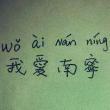 wǒ ài nán níng
我爱南寧